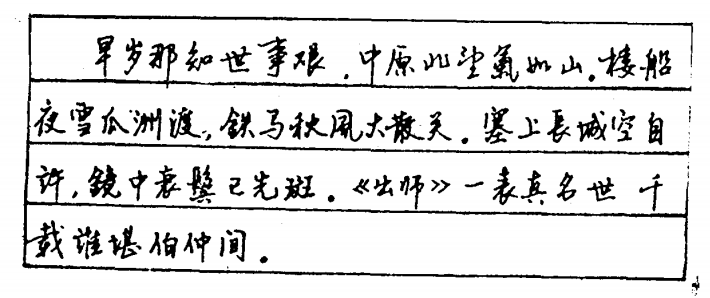 早岁那知世事艰，中原北望氣如山。楼船
夜雪瓜洲渡，铁马秋風大散关。塞上長城空自
许，鏡中衰鬓已先斑。《出师》一表真名世 千
载誰堪伯仲间。